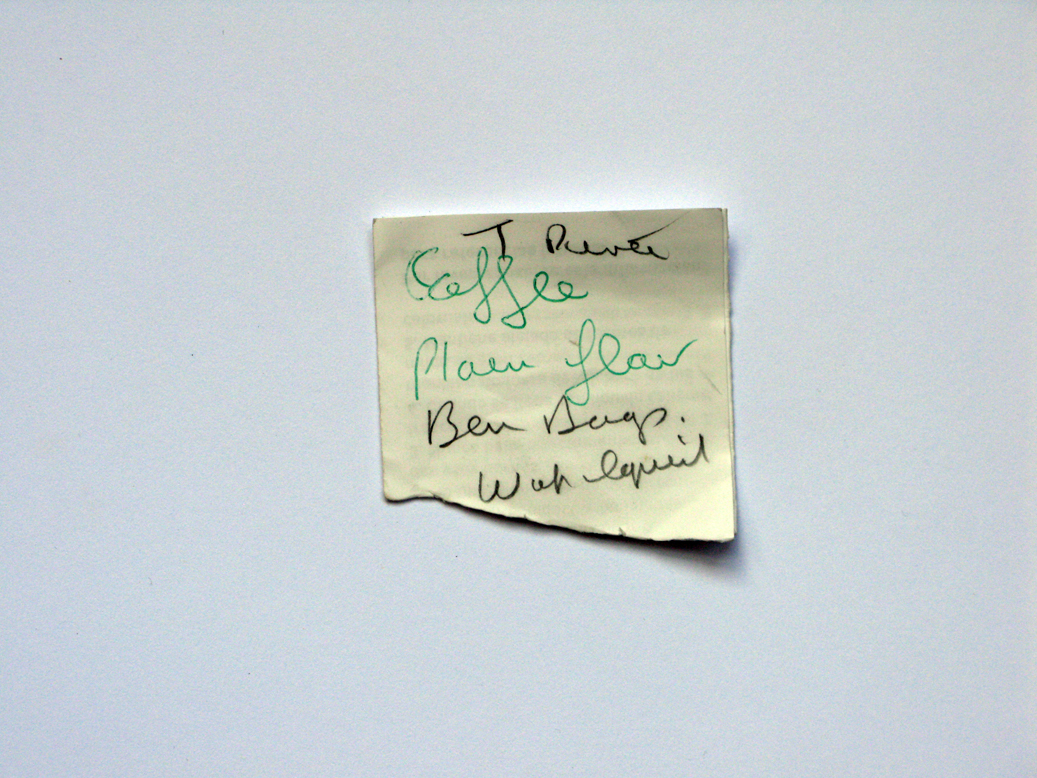 T Purée
Coffee
Plain flour
Bin Bags.
Wash liquid